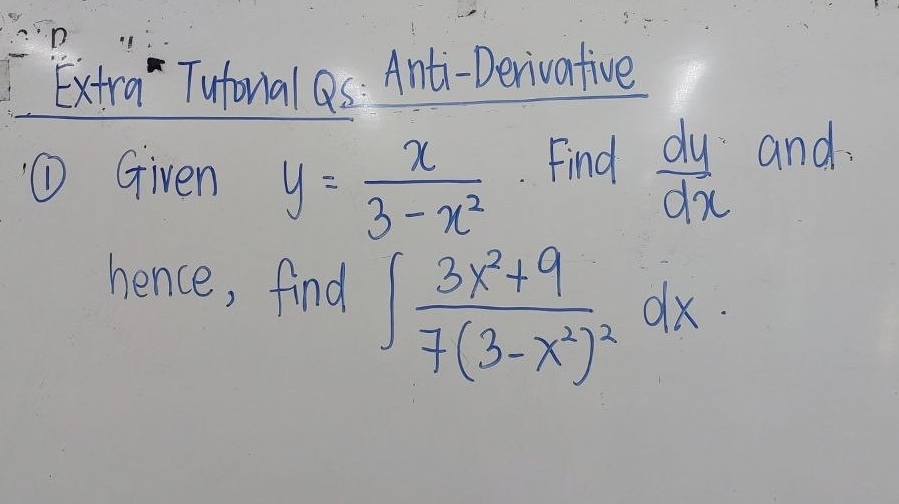 Extra Tutorial Qs: Anti-Derivative
① Given y = x / (3 - x²) . Find dy/dx and
hence, find ∫ (3x² + 9) / (7(3 - x²)²) dx .